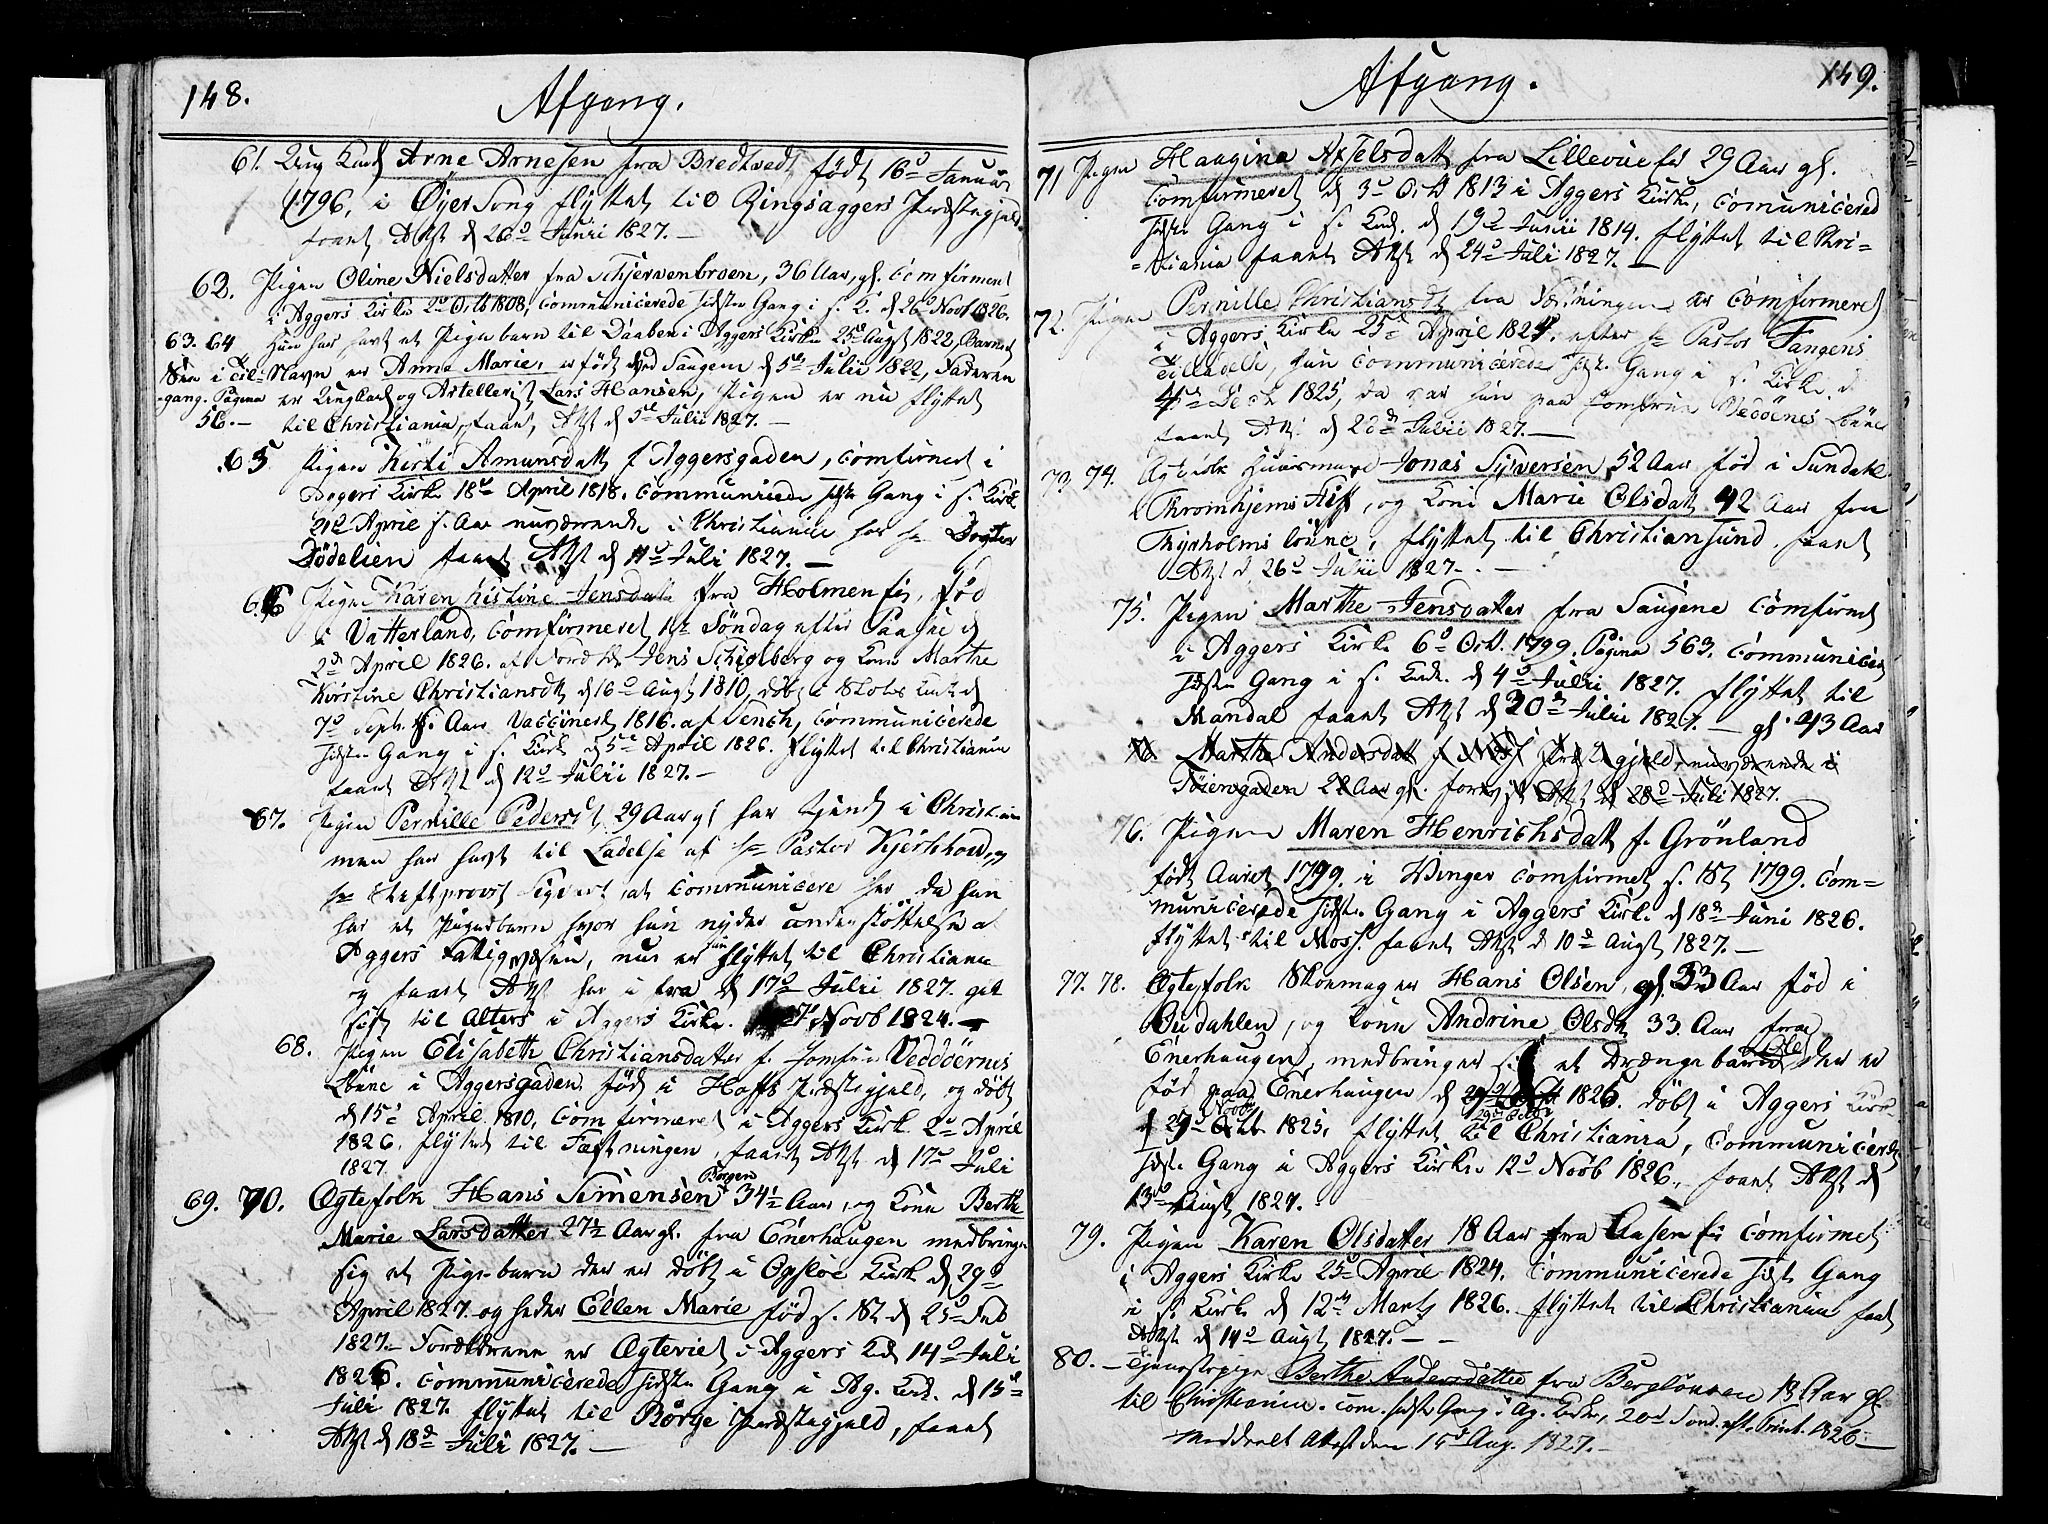 148.
Afgang.
61. Ung Karl Arne Arnesen fra Bredtvedt født 16d Januar
1796, i Øyer Sogn flyttet til Ringsaggers Præstegjeld
faaet Att d 26d Junii 1827. —
62. Pigen Oline Nielsdatter fra Schjervenbroen, 36 Aar, gl. Comfirmeret
i Aggers Kirke 2d Octb 1808, communicerede sidste Gang i s. K. d 26d Novb 1826.
63. 64 Hun har havt et Pigebarn til Daaben i Aggers Kirke 25d Augst 1822, Barnets
See i Til- Navn er Anna Marie, er født ved Saugene d 5te Julii 1822, Faderen
-gang. Pagina er Ungkarl og Artellerist Lars Hansen, Pigen er nu flyttet
56. — til Christiania, faaet Attst d 5te Julii 1827. —
65 Pigen Kisti Amunsdatt f Aggersgaden, comfirmeret i
Aggers Kirke 18d April 1818. communicerede sidste Gang i s. Kirke
d April s. Aar nuværende i Christiania hos Hr Dogter
Dødelien faaet Attst d 11d Juli 1827. —
66 Pigen Karen Kistine Jensdatt fra Holmen fj, fød
i Vatterland, comfirmeret 1ste Søndag efter Paaske d
2d April 1826. af Forældre Jens Schiølberg og Kone Marthe
Kirstine Christiansdt d 16d Augst 1810, døbt i Kirke d
7d Septr s. Aar Vaccineret 1816. af Fench, communicerede
sidste Gang i s. Kirke d 5te April 1826. flyttet til Christiania
faaet Attst d 12d Julii 1827. —
67. Pigen Pernille Pedersdt, 29 Aar gl har tjent i Christiania
men har havt til Ladelse af Hr Pastor Kjerkhoed, og
Hr Stiftprovst Sigvart at communicere her da hun
har et Pigebarn hvor hun nyder understøttelse af
Aggers Fattigvæsen, nu er hun flyttet til Christiania
og faaet Attst her i fra d 17d Julii 1827. gik
sidst til Alters i Aggers Kirke. 7 Novb 1824. —
68. Pigen Elisabeth Christiansdatter f. Jomfru Veddøernes
Løkke i Aggersgaden, født i Hoffs Præstegjeld, og døbt
d 15d April 1810, comfirmeret i Aggers Kirke 2d April
1826, flyttet til Fæstningen, faaet Attst d 17d Juli
1827.
69. 70. Ægtefolk Hans Simensen Borgen 34½ Aar, og Kone Berthe
Marie Larsdatter 27½ Aar gl. fra Enerhaugen medbringer
sig et Pigebarn der er døbt i Opsloe Kirke d 29d
April 1827 og heder Ellen Marie fød s. St d 25d Feb
1827. — Forældrene er Ægteviet i Aggers Kirke d 14d Juli
1826. communicerede sidste Gang i Ag. Kirke. d 15d
Juli 1827. flyttet til Børge Præstegjeld, faaet
Attst d 18d Juli 1827. —
149.
Afgang.
71 Pigen Haagina Axselsdatt fra Lillevue fj 29 Aar gl.
Comfirmeret d 3d Octb 1813 i Aggers Kirke, communicered
sidste Gang i s. Kirke. d 19d Junii 1814. flyttet til Chri-
-stiania faaet Attst d 24d Juli 1827. —
72. Pigen Pernille Christiansdt fra Fæstningen er Comfirmeret
i Aggers Kirke 25d April 1824. efter Hr Pastor Fangens
Tilladelse, hun communicerede sidste Gang i s. Kirke. d
4de Decb 1825, da var hun paa Jomfrue Veddøenes Løkke
faaet Att d 22de Julii 1827. —
73. 74. Ægtefolk Huusmand Jonas Syversen, 52 Aar fød i Sundahl
Thromhjems Stift, og Kone Marie Olsdatt 42 Aar fra
Thysholms Løkke, flyttet til Christiansund, faaet
Attst d 26d Julii 1827. —
75. Pigen Marthe Jensdatter fra Saugene comfirmet
i Aggers Kirke 6d Octb. 1799. Pagina 563. communiceret
sidste Gang i s. Kirke. d 4d Juli 1827. flyttet til
Mandal faaet Attst d 20de Julii 1827. — gl 43 Aar
76 Marthe Andersdatt f Præstegjeld, nuværende i
Tøiensgaden 22 Aar gl. Attst d 28d Juli 1827.
76. Pigen Maren Henrichsdatt f. Grønland
født Aaret 1799. i Winger comfirmet s. St 1799. Com-
municerede sidste Gang i Aggers Kirke d 18de Juni 1826.
flyttet til Moss. faaet Attst d 10d Augst 1827. —
77. 78. Ægtefolk Skomager Hans Olsen, gl. 33 Aar fød i
Budahlen, og Kone Andrine Olsdt 33. Aar fra
Enerhaugen, medbringer sig et Drænge barn Ole der er
fød paa Enerhaugen d 1825. døbt i Aggers Kirke
d 27d Novbr 1825, flyttet til Christiania, Communicerede
sidste Gang i Aggers Kirke 12d Novb 1826. faaet Attst d
13d Augst 1827. —
79. Pigen Karen Olsdatter 18 Aar fra Aasen fj comfirmet
i Aggers Kirke 25d April 1824. communicerede sidst Gang
i s Kirke d 12te Marts 1826. flyttet til Christiania faaet
Attst d 14d Augst 1827. — —
80. — Tjenestepige Berthe Andersdatter fra Bergløkken 19 Aar gl
til Christiania. com. sidste Gang i Ag. Kirke, 20d Sond. eft. Trinit. 1826 —
Meddeelt Attest den 15d Aug. 1827. —